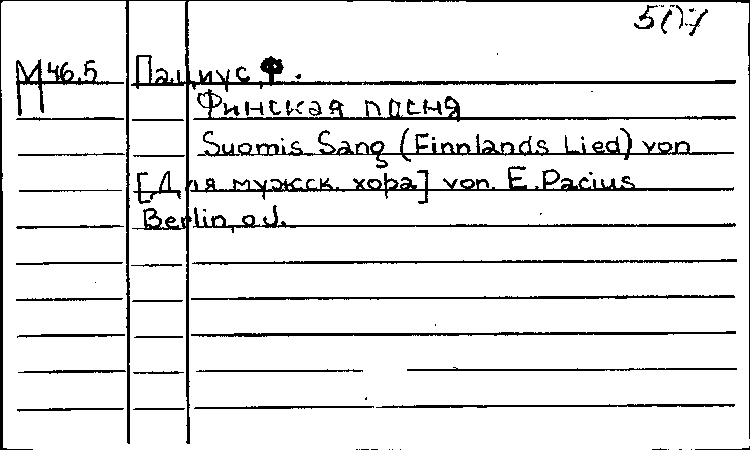 М 46.5 Пациус, Ф.
Финская песня
Suomis Sang (Finnlands Lied) von
[Для мужск. хора] von. E. Pacius
Berlin, o.J.